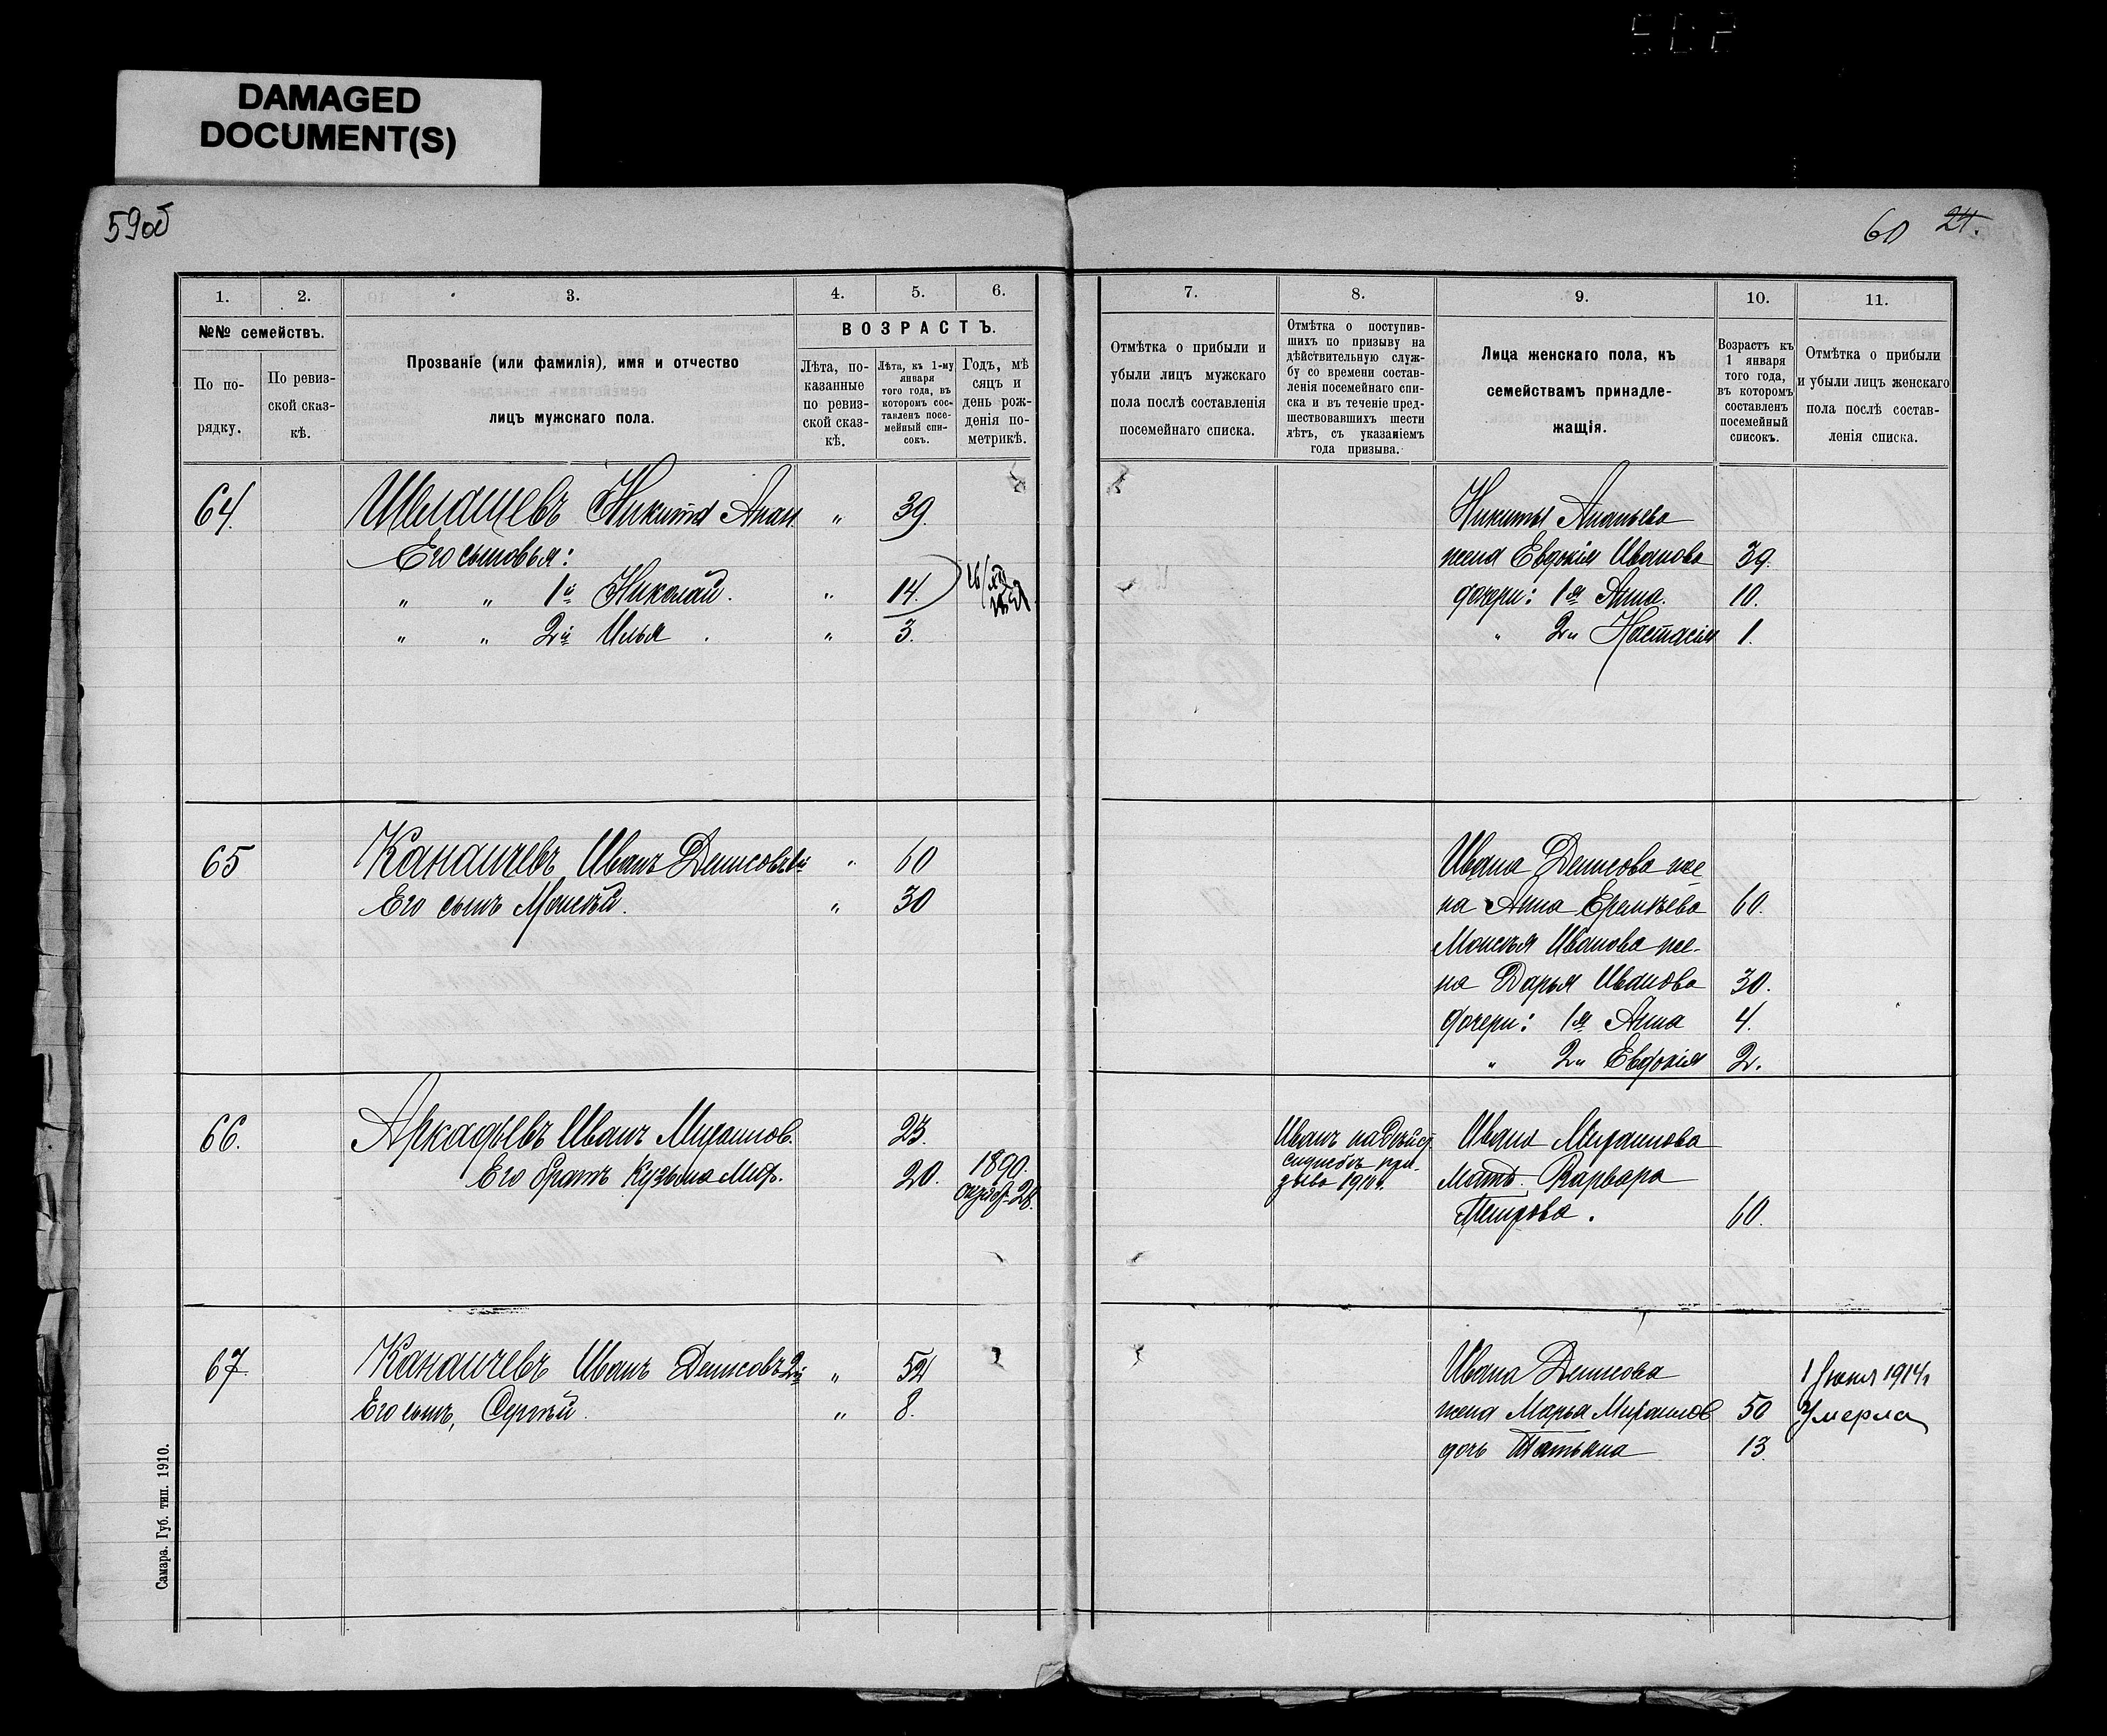 DAMAGED
DOCUMENT(S)
59об
60 24.
1. 2. 3. 4. 5. 6.
№№ семействъ.
По по-
рядку.
По ревиз-
ской сказ-
кѣ.
Прозваніе (или фамилія), имя и отчество
лицъ мужскаго пола.
ВОЗРАСТЪ.
Лѣта, по-
казанные
по ревиз-
ской сказ-
кѣ.
Лѣта, къ 1-му
января
того года, въ
которомъ сос-
тавленъ посе-
мейный спи-
сокъ.
Годъ, мѣ
сяцъ и
день рож-
денія по-
метрикѣ.
64. Никита Анан „ 39.
Его сыновья:
„ „ 1й Николай. „ 14.
„ „ 2й Илья. „ 3.
65 Канаичевъ Иванъ Денисовъ 1й „ 60
Его сынъ Моисѣй. „ 30
66. Аркадьевъ Иванъ 23.
Его братъ Кузьма 20. 1890.
октябр. 28.
67. Канаичевъ Иванъ Денисовъ 2й „ 52
Его сынъ, Сергѣй. „ 8.
Самара. Губ. тип. 1910.
7. 8. 9. 10. 11.
Отмѣтка о прибыли и
убыли лицъ мужскаго
пола послѣ составленія
посемейнаго списка.
Отмѣтка о поступив-
шихъ по призыву на
дѣйствительную служ-
бу со времени состав-
ленія посемейнаго спи-
ска и въ теченіе пред-
шествовавшихъ шести
лѣтъ, съ указаніемъ
года призыва.
Лица женскаго пола, къ
семействамъ принадле-
жащія.
Возрастъ къ
1 января
того года,
въ которомъ
составленъ
посемейный
списокъ.
Отмѣтка о прибыли
и убыли лицъ женскаго
пола послѣ состав-
ленія списка.
Никиты Ананьева
жена Евдокія Иванова 39.
дочери: 1я Анна. 10.
„ 2я Настасія 1.
Ивана Денисова же-
на Анна Еремѣева 60.
Моисѣя Иванова же-
на Дарья Иванова 30.
дочери: 1я Анна 4.
„ 2я Евдокія 2.
Иванъ на дѣйст.
службѣ при-
зыва
Ивана
Мать Варвара
Петрова. 60.
Ивана Денисова
жена Марья 50
дочь Татьяна 13.
1 1914г
Умерла